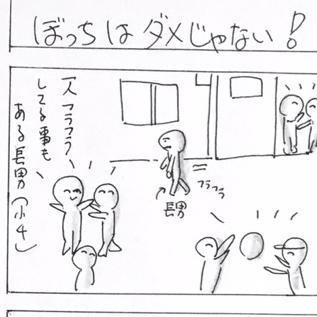 ぼっちはダメじゃない!
一人フラフラ
してる事も
ある長男(小4)
フラフラ
長男